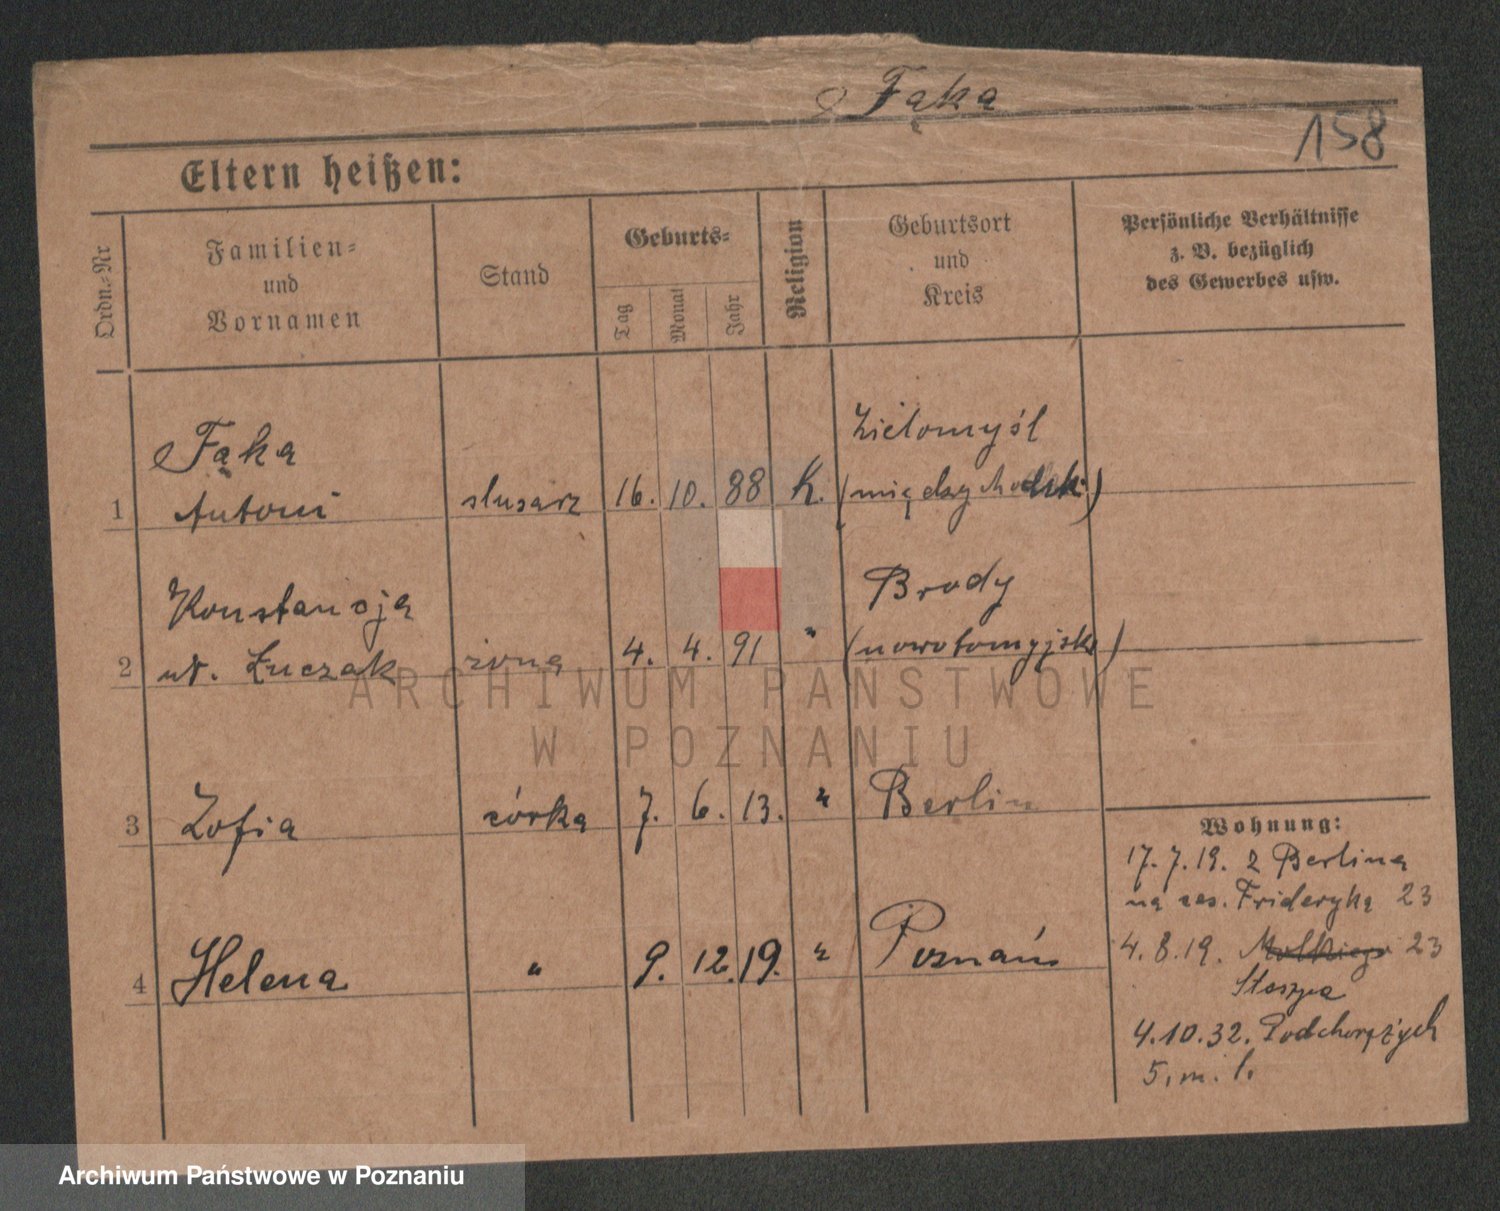 Fąka
158
Eltern heißen:
Ordn.-Nr
Familien-
und
Vornamen
Stand
Geburts-
Tag
Monat
Jahr
Religion
Geburtsort
und
Kreis
Persönliche Verhältnisse
z. B. bezüglich
des Gewerbes usw.
Fąka
Zielomyśl
1 Antoni ślusarz 16. 10. 88 k. (międzychodzki)
Konstancja
Brody
2 ur. Łuczak żona 4. 4. 91 " (nowotomyjski)
3 Zofia córka 7. 6. 13. " Berlin
4 Helena " 9. 12. 19. " Poznań
Wohnung:
17.7.19. z Berlina
na zas. Frideryka 23
4.8.19. Moltkiego 23
Staszyca
4.10.32. Podchorążych
5, m. 1.
ARCHIWUM PAŃSTWOWE
W POZNANIU
Archiwum Państwowe w Poznaniu